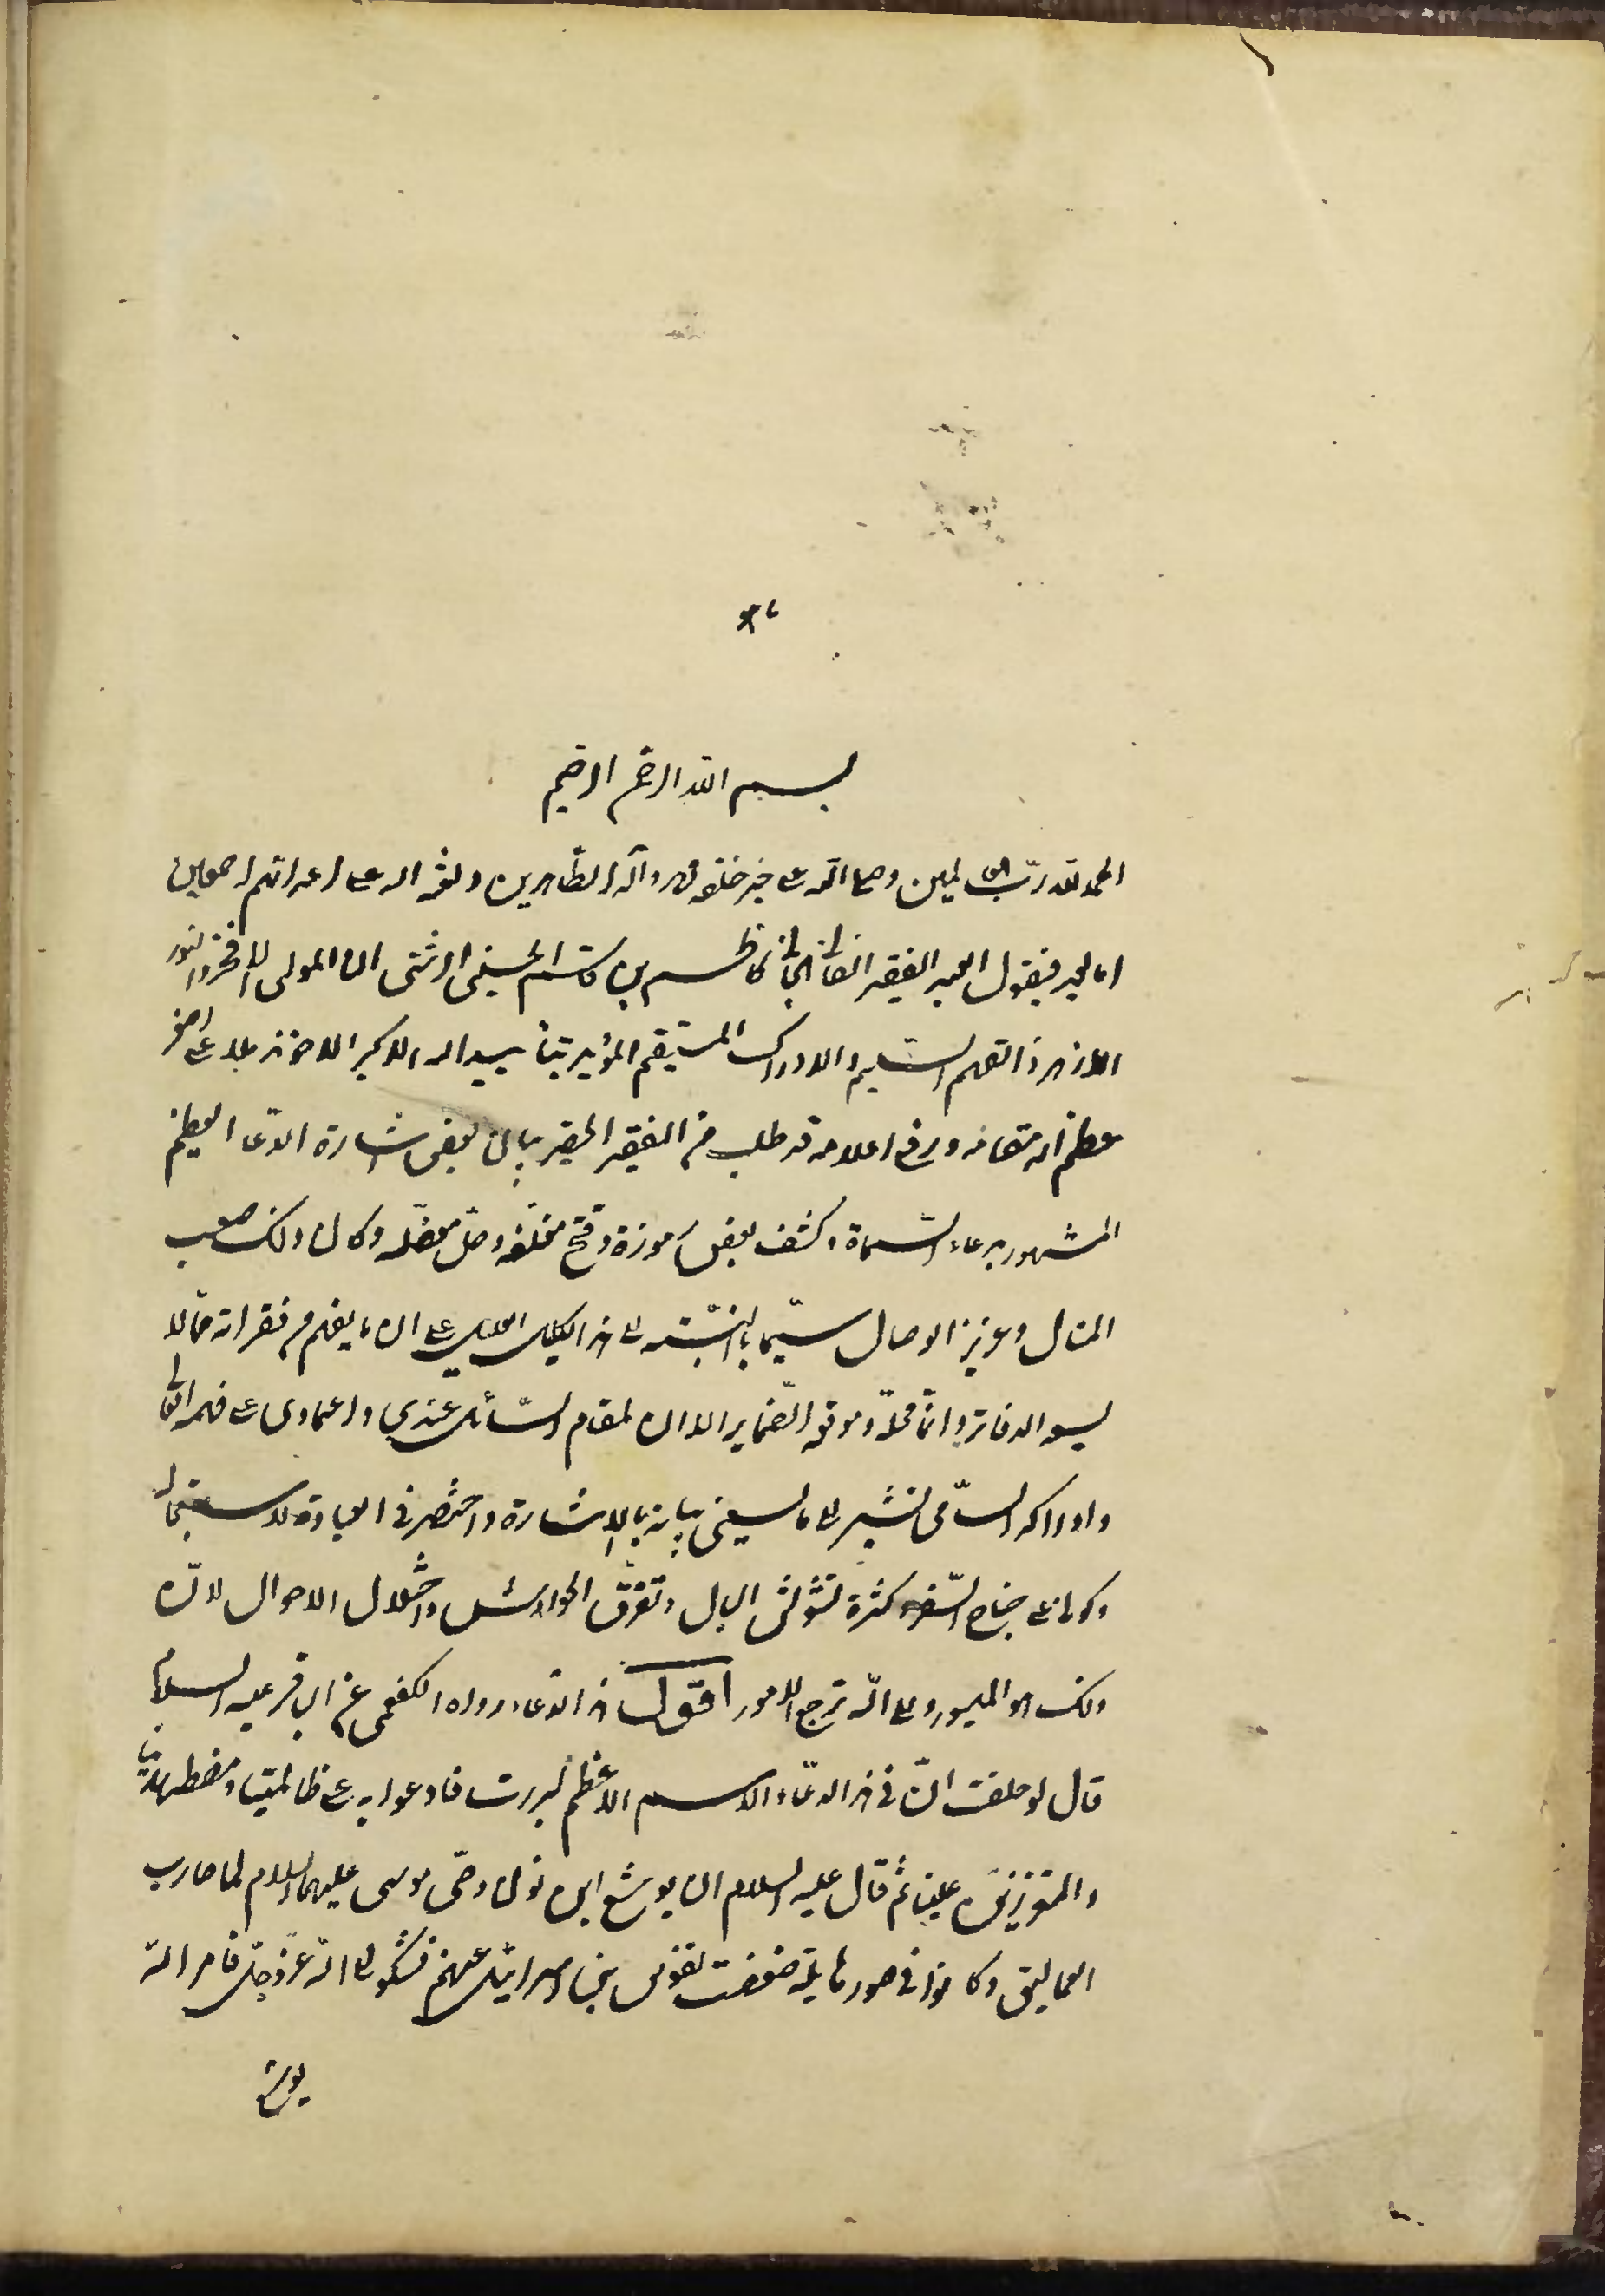 بسم الله الرحمن الرحيم
الحمد لله رب العالمين وصلى الله على خير خلقه محمد وآله الطاهرين ولعنة الله على اعدائهم اجمعين
اما بعد فيقول العبد الفقير الفاني الجاني كاظم بن قاسم الحسيني الرشتي ان المولى الافخر والنور
الازهر ذا الفهم السليم والادراك المستقيم المؤيد بتأييد الله الاكبر الاخوند ملا علي اصغر
عظم الله مقامه ورفع اعلامه قد طلب من الفقير الحقير بيان بعض اشارة الدعاء العظيم
المشهور بدعاء السماة وكشف بعض رموزه وفتح مغلقه وحل معضله وكان ذلك صعب
المنال وعزيز الوصال سيما بالنسبة الى هذا الكليل العليل على ان ما يفهم من فقراته مما لا
يسعه الدفاتر وانما محله وموقعه الضماير الا ان لمقام السائل عندي واعتمادي على فهمه العالي
وادراكه السامي نشير الى ما يسنح بيانه بالاشارة واختصر في العبادة لاستعجالي
وكوني على جناح السفر وكثرة تشويش البال وتفرق الحواس واختلال الاحوال لان
ذلك هو الميسور والى الله ترجع الامور اقول هذا الدعاء رواه الكفعمي عن الباقر عليه السلام
قال لو حلفت ان في هذا الدعاء الاسم الاعظم لبررت فادعوا به على ظالمينا ومضطهدينا
والمتعززين علينا ثم قال عليه السلام ان يوشع ابن نون وصي موسى عليهما السلام لما حارب
العماليق وكانوا في صور هايلة ضعفت نفوس بني اسرائيل عنهم فشكوا الى الله عز وجل فامر الله
يوشع